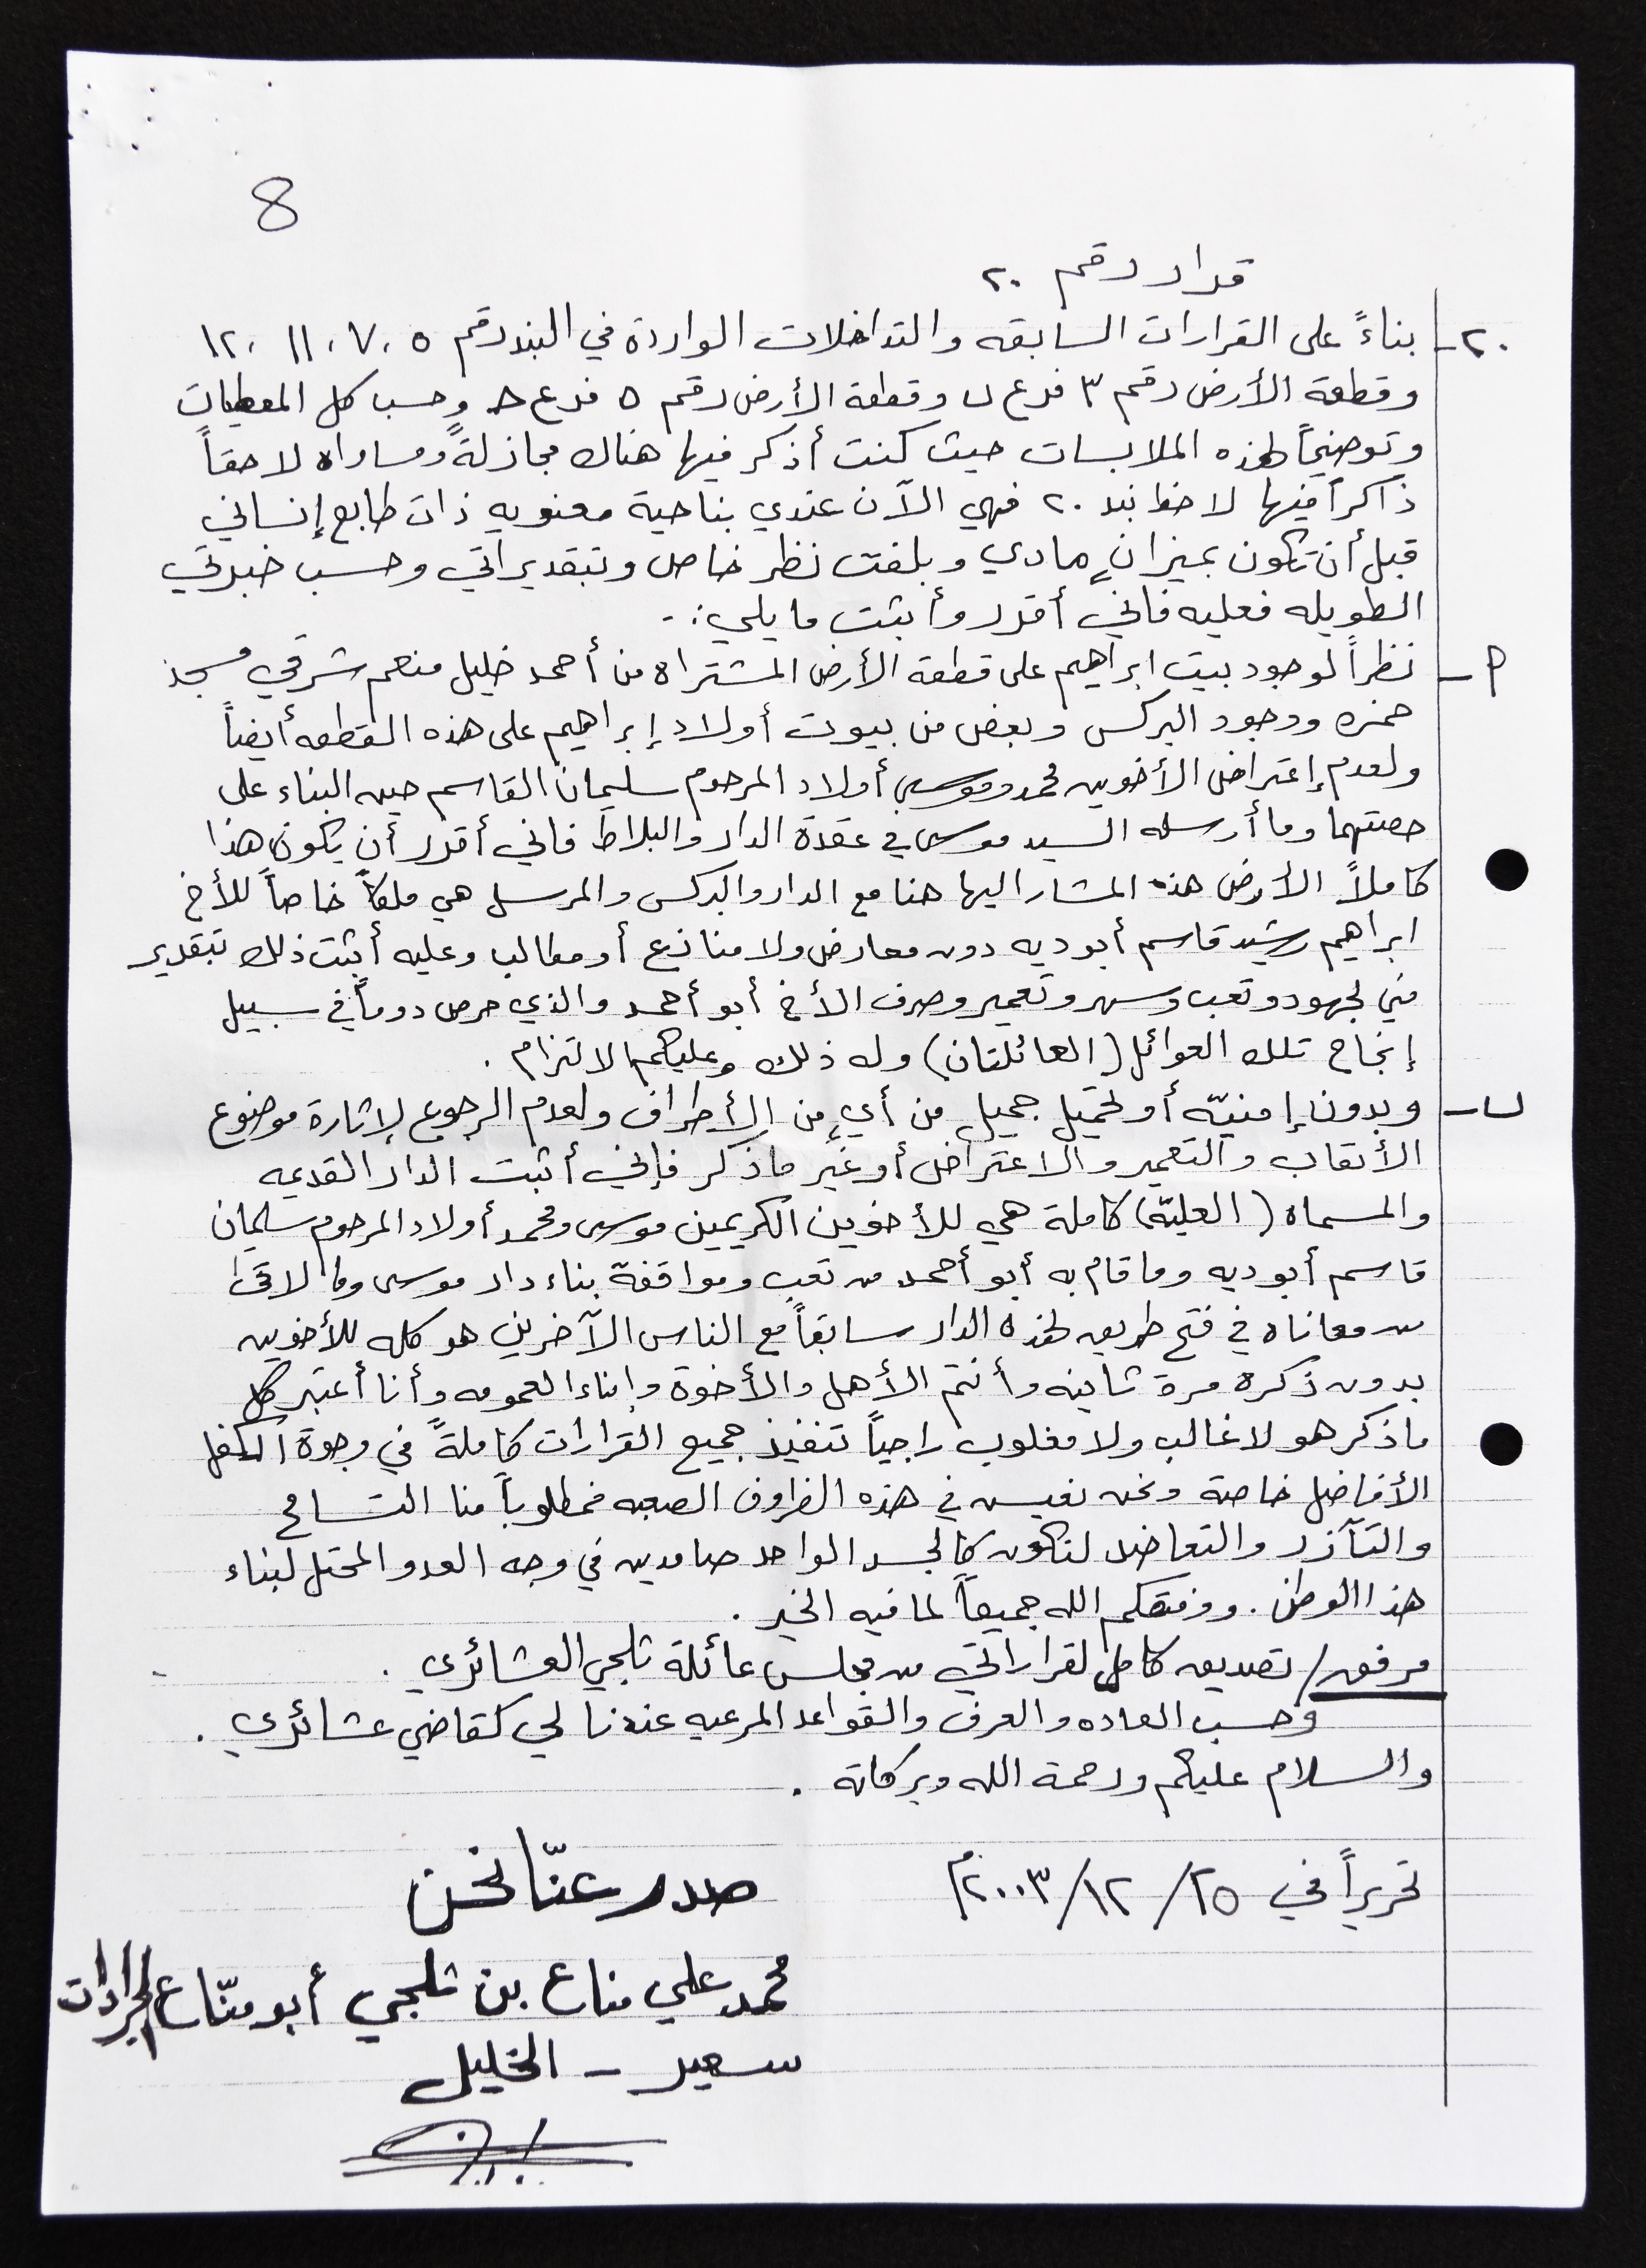 8
قرار رقم ٢٠
٢٠- بناءً على القرارات السابقه والتداخلات الواردة في البند رقم ٥، ٧، ١١، ١٢
وقطعة الأرض رقم ٣ فرع ب وقطعة الأرض رقم ٥ فرع حـ وحسب كل المعطيات
وتوضيحاً لهذه الملابسات حيث كنت أذكر فيها هناك مجازلةً ومساواه لاحقاً
ذاكراً فيها لاحظ بند ٢٠ فهي الآن عندي بناحية معنويه ذات طابع إنساني
قبل أن تكون بميزانٍ مادي وبلفت نظر خاص وبتقديراتي وحسب خبرتي
الطويله فعليه فاني أقرر وأثبت ما يلي :-
أ- نظراً لوجود بيت ابراهيم على قطعة الأرض المشتراه من أحمد خليل منعم شرقي مسجد
حمزه ووجود البركس وبعض من بيوت أولاد إبراهيم على هذه القطعه أيضاً
ولعدم إعتراض الأخوين محمد وموسى أولاد المرحوم سليمان القاسم حين البناء على
حصتهما وما أرسله السيد موسى في عقدة الدار والبلاط فاني أقرر أن يكون هذا
كاملاً الأرض هذه المشار اليها هنا مع الدار والبركس والمرسل هي ملكاً خاصاً للأخ
ابراهيم رشيد قاسم أبو ديه دون معارض ولا منازع أو مطالب وعليه أثبت ذلك بتقدير
مني لجهود وتعب وسهر وتعمير وصرف الأخ أبو أحمد والذي حرص دوماً في سبيل
إنجاح تلك العوائل (العائلتان) وله ذلك وعليكم الالتزام .
ب- وبدون إمنيّه أو تحميل جميل من أيٍ من الأطراف ولعدم الرجوع لإثارة موضوع
الأتعاب والتعمير والاعتراض أو غير ما ذكر فإني أثبت الدار القديمه
والمسماه (العليّه) كاملة هي للأخوين الكريمين موسى ومحمد أولاد المرحوم سليمان
قاسم أبو ديه وما قام به أبو أحمد من تعب ومواقفة بناء دار موسى وما لاقى
من معاناه في فتح طريق لهذه الدار سابقاً مع الناس الآخرين هو كله للأخوين
بدون ذكره مرة ثانيه وأنتم الأهل والأخوة وابناء العمومه وأنا أعتبر كل
ما ذكر هو لا غالب ولا مغلوب راجياً تنفيذ جميع القرارات كاملةً في وجوة الكفل
الأفاضل خاصة ونحن نعيش في هذه الظروف الصعبه فمطلوباً منا التسامح
والتآزر والتعاضد لنكون كالجسد الواحد صامدين في وجه العدو المحتل لبناء
هذا الوطن . ووفقكم الله جميعاً لما فيه الخير .
مرفق / تصديق كامل لقراراتي من مجلس عائلة ثلجي العشائري .
وحسب العاده والعرف والقواعد المرعيه عندنا لي كقاضي عشائري .
والسلام عليكم ورحمة الله وبركاته .
تحريراً في ٢٥/١٢/٢٠٠٣م
صدر عنّا نحن
محمد علي مناع بن ثلجي أبو منّاع الجرادات
سعير - الخليل